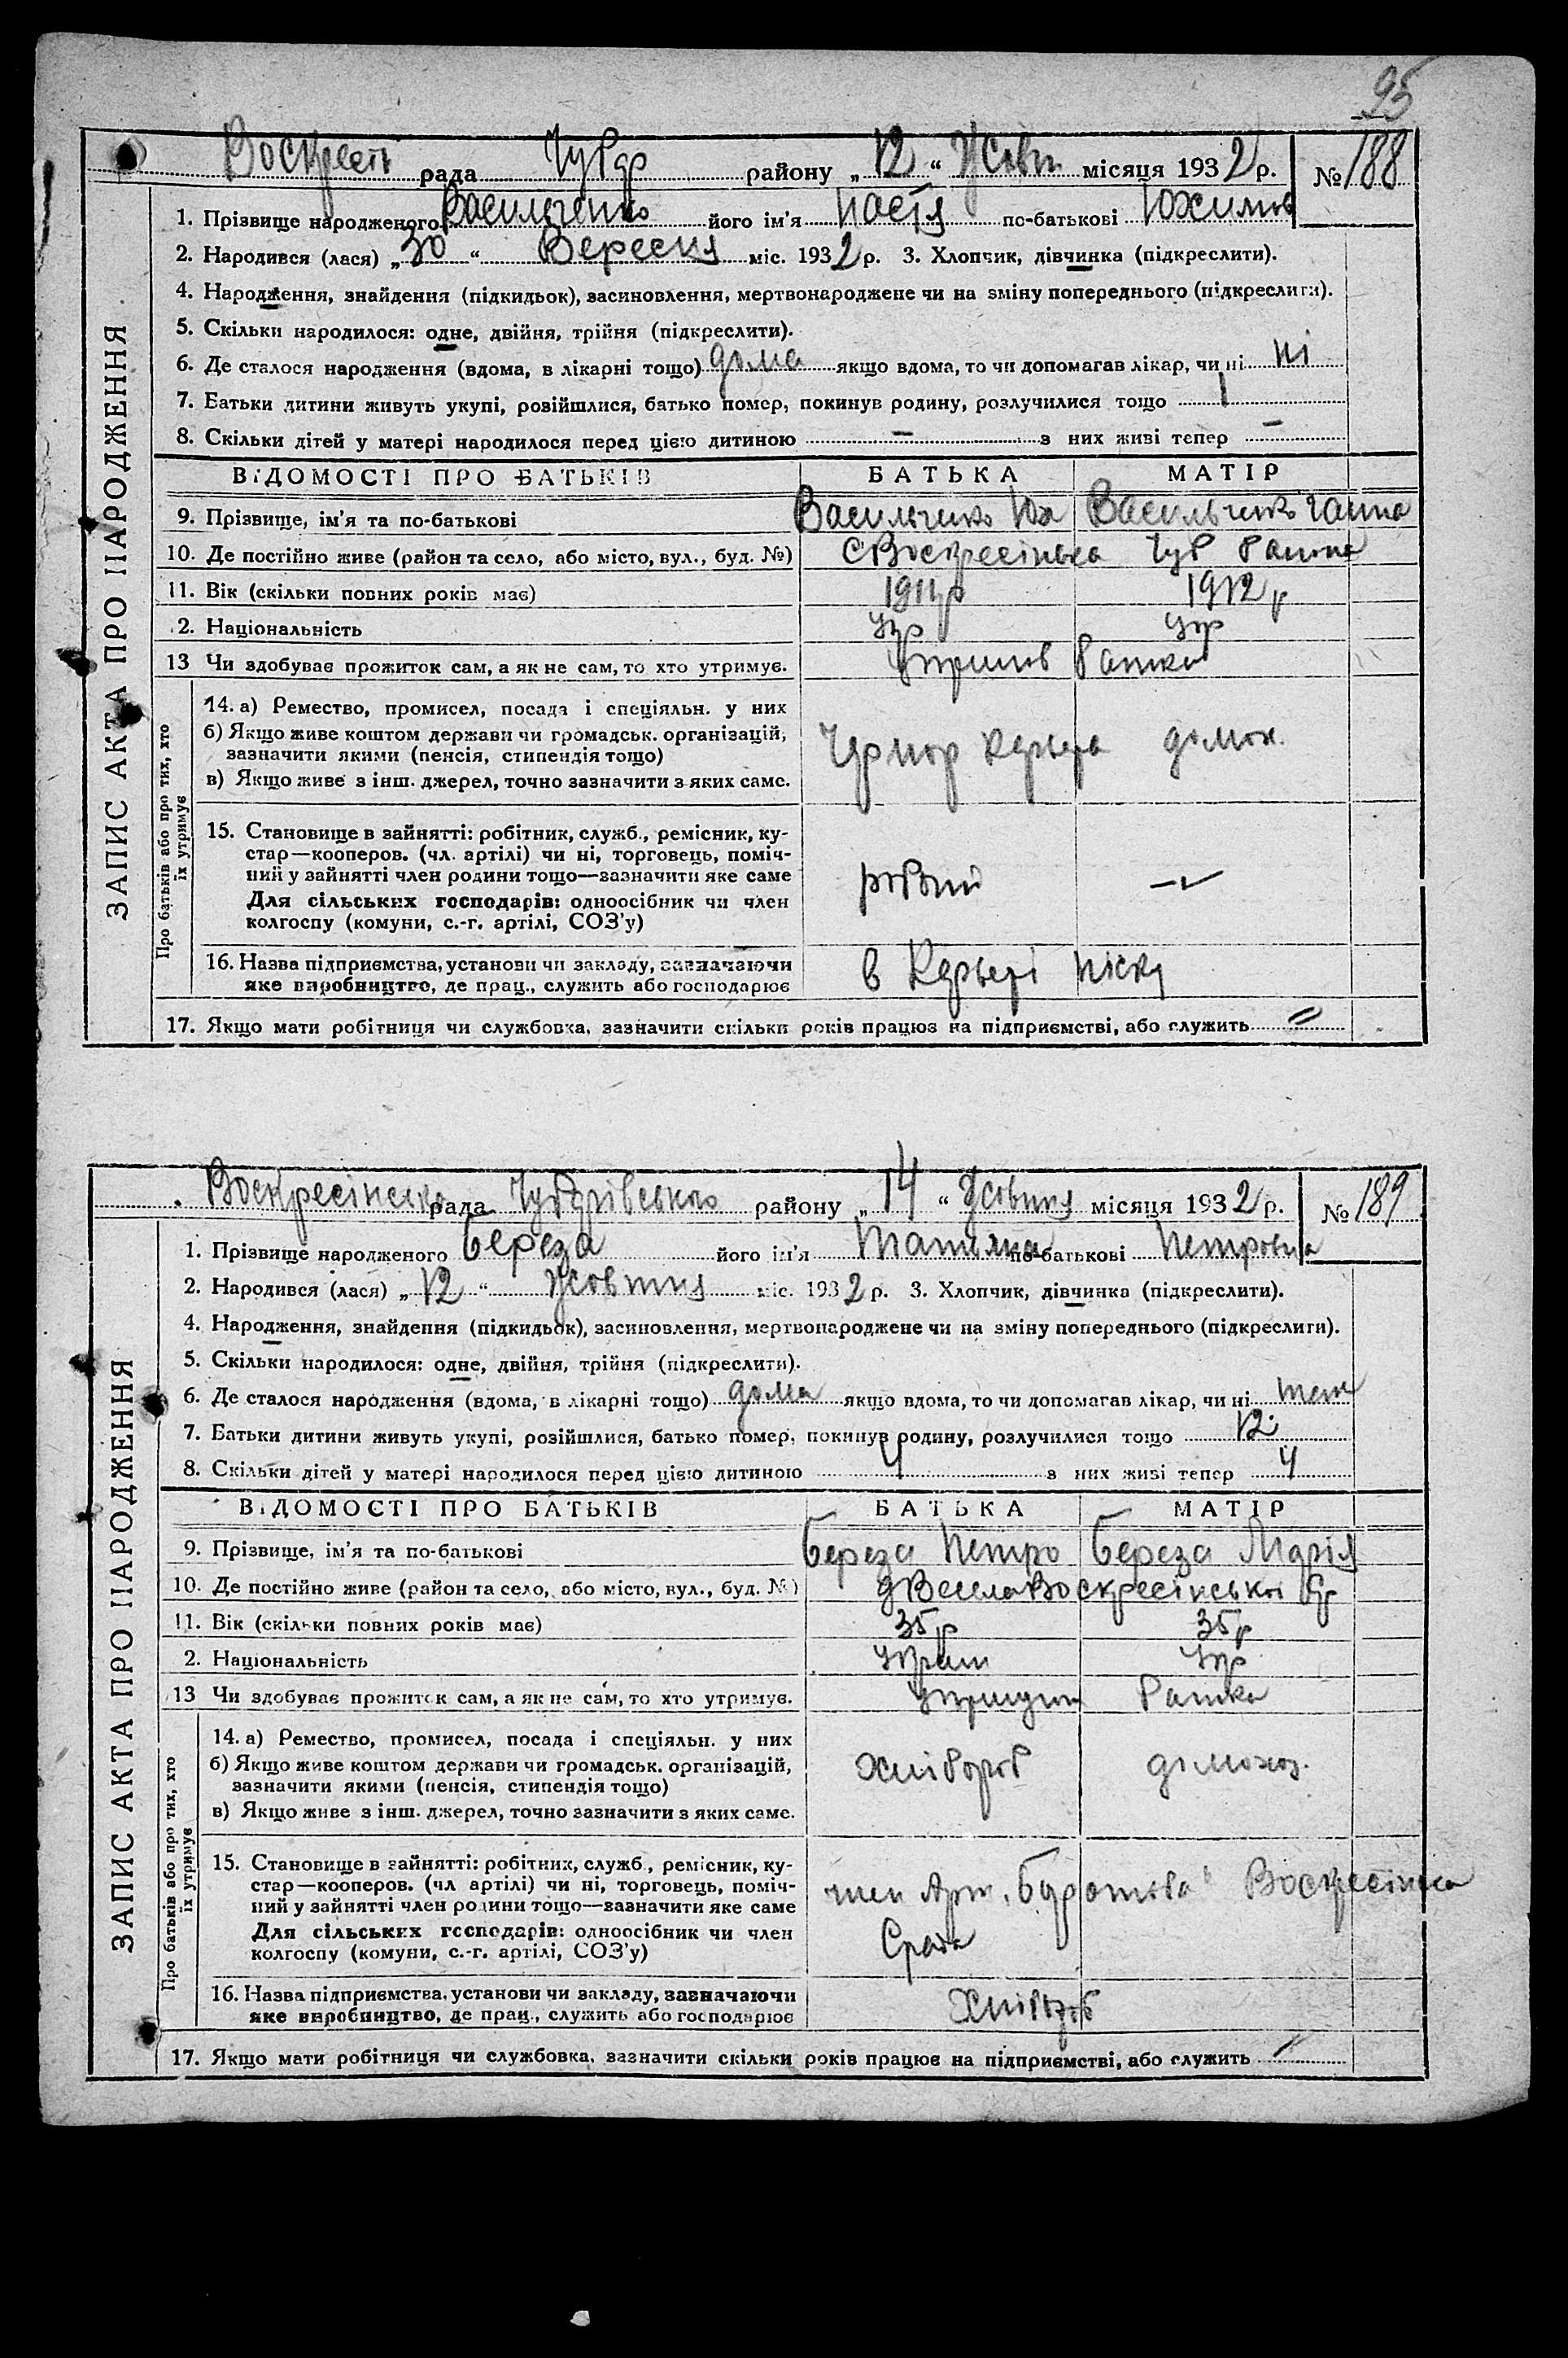 95
Воскресен рада Чубар району „12“ Жовтн місяця 1932 р. № 188
ЗАПИС АКТА ПРО НАРОДЖЕННЯ
1. Прізвище народженого Васильченко його ім'я Настя по-батькові Юхимов
2. Народився (лася) „30“ Вересня міс. 1932 р. 3. Хлопчик, дівчинка (підкреслити).
4. Народження, знайдення (підкидьок), засиновлення, мертвонароджене чи на зміну попереднього (підкреслити).
5. Скільки народилося: одне, двійня, трійня (підкреслити).
6. Де сталося народження (вдома, в лікарні тощо) дома якщо вдома, то чи допомагав лікар, чи ні ні
7. Батьки дитини живуть укупі, розійшлися, батько помер, покинув родину, розлучилися тощо 1
8. Скільки дітей у матері народилося перед цією дитиною – з них живі тепер –
ВІДОМОСТІ ПРО БАТЬКІВ БАТЬКА МАТІР
9. Прізвище, ім'я та по-батькові Васильченко Юх Васильченко Ганна
10. Де постійно живе (район та село, або місто, вул., буд. №) с Воскресінька Чуб
11. Вік (скільки повних років має) 1911р 1912 р
2. Національність Укр Укр
13 Чи здобуває прожиток сам, а як не сам, то хто утримує.
Про батьків або про тих, хто їх утримує
14. а) Ремество, промисел, посада і спеціяльн. у них
б) Якщо живе коштом держави чи громадськ. організацій,
зазначити якими (пенсія, стипендія тощо)
в) Якщо живе з інш. джерел, точно зазначити з яких саме.
Чормор карьера домох.
15. Становище в зайнятті: робітник, служб., ремісник, ку-
стар—кооперов. (чл. артілі) чи ні, торговець, поміч-
ний у зайнятті член родини тощо—зазначити яке саме
Для сільських господарів: одноосібник чи член
колгоспу (комуни, с.-г. артілі, СОЗ'у)
16. Назва підприємства, установи чи закладу, зазначаючи
яке виробництво, де прац., служить або господарює
в Карьері піску
17. Якщо мати робітниця чи службовка, зазначити скільки років працює на підприємстві, або служить
Воскресінська рада Чубарівського району „14“ Жовтня місяця 1932 р. № 189
ЗАПИС АКТА ПРО НАРОДЖЕННЯ
1. Прізвище народженого Береза його ім'я Татьяна по-батькові Петровна
2. Народився (лася) „12“ Жовтня міс. 1932 р. 3. Хлопчик, дівчинка (підкреслити).
4. Народження, знайдення (підкидьок), засиновлення, мертвонароджене чи на зміну попереднього (підкреслити).
5. Скільки народилося: одне, двійня, трійня (підкреслити).
6. Де сталося народження (вдома, в лікарні тощо) дома якщо вдома, то чи допомагав лікар, чи ні
7. Батьки дитини живуть укупі, розійшлися, батько помер, покинув родину, розлучилися тощо 12
8. Скільки дітей у матері народилося перед цією дитиною 4 з них живі тепер 4
ВІДОМОСТІ ПРО БАТЬКІВ БАТЬКА МАТІР
9. Прізвище, ім'я та по-батькові Береза Петро Береза Марія
10. Де постійно живе (район та село, або місто, вул., буд. №) Воскресінської
11. Вік (скільки повних років має) 35 р 35 р
2. Національність Украін Укр
13 Чи здобуває прожиток сам, а як не сам, то хто утримує.
Про батьків або про тих, хто їх утримує
14. а) Ремество, промисел, посада і спеціяльн. у них
б) Якщо живе коштом держави чи громадськ. організацій,
зазначити якими (пенсія, стипендія тощо)
в) Якщо живе з інш. джерел, точно зазначити з яких саме.
Хлібороб домохоз.
15. Становище в зайнятті: робітник, служб., ремісник, ку-
стар—кооперов. (чл артілі) чи ні, торговець, поміч-
ний у зайнятті член родини тощо—зазначити яке саме
Для сільських господарів: одноосібник чи член
колгоспу (комуни, с.-г. артілі, СОЗ'у)
член Арт. Воскресінка
Срада
16. Назва підприємства, установи чи закладу, зазначаючи
яке виробництво, де прац., служить або господарює
Хлібороб
17. Якщо мати робітниця чи службовка, зазначити скільки років працює на підприємстві, або служить